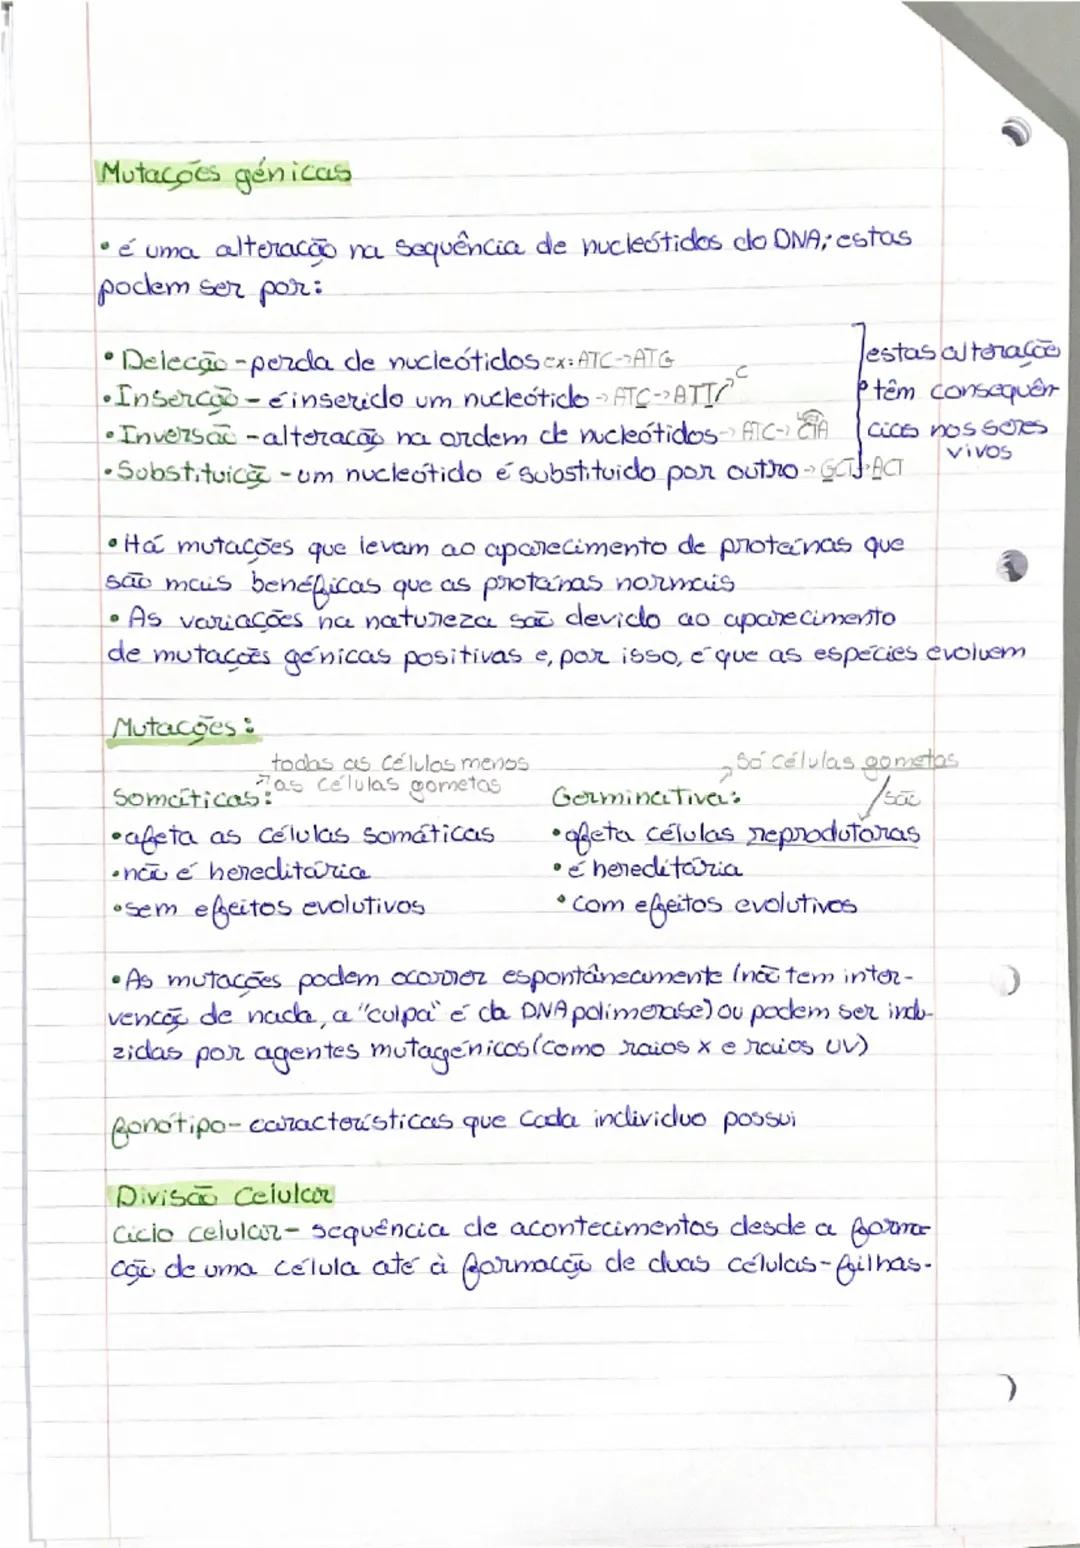 Mutações génicas
• é uma alteração na sequência de nucleótidos do DNA; estas
podem ser por:
• Deleção - perda de nucleótidos ex: ATC->ATG
• Inserção - é inserido um nucleótido -> ATC->ATTC
• Inversão - alteração na ordem de nucleótidos -> ATC-> CTA
• Substituição - um nucleótido é substituido por outro -> GCT->ACT
estas alteraçõe
têm consequên
cias nos seres
vivos
• Há mutações que levam ao aparecimento de proteínas que
são mais benéficas que as proteínas normais
• As variações na natureza são devido ao aparecimento
de mutações génicas positivas e, por isso, é que as espécies evoluem
Mutações:
todas as células menos
as células gometas
Somáticas:
• afeta as células somáticas
• não é hereditária
• sem efeitos evolutivos
só células gometas
são
Germinativa:
• afeta células reprodutoras
• é hereditária
• com efeitos evolutivos
• As mutações podem ocorrer espontâneamente (não tem inter-
venção de nada, a "culpa" é da DNA polimerase) ou podem ser indu-
zidas por agentes mutagénicos (como raios x e raios UV)
fonótipo- características que cada individuo possui
Divisão Celular
Ciclo celular- sequência de acontecimentos desde a forma-
ção de uma célula até à formação de duas células-filhas.